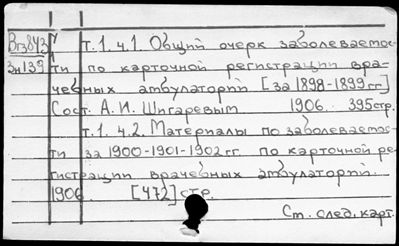 Вгз843 т.1. ч.1. Общий очерк заболеваемос-
Зн139 ти по карточной регистрации вра-
чебных амбулаторий [за 1898-1899 гг]
Сост. А. И. Шигаревым 1906. 395 стр.
т.1. ч.2. Материалы по заболеваемос-
ти за 1900-1901-1902 гг. по карточной ре-
гистрации врачебных амбулаторий.
1906. [472] стр.
См. след. карт.